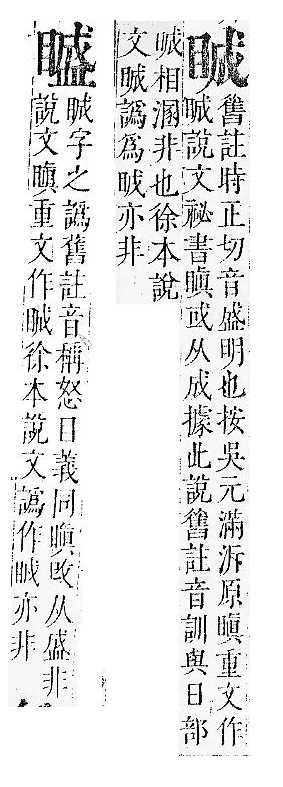 舊註時正切音盛明也按吳元滿泝原瞋重文作
說文祕書瞋或从成據此說舊註音訓與日部
晠相溷非也徐本說
文譌為亦非
字之譌舊註音稱怒目義同瞋改从盛非
說文瞋重文作徐本說文譌作亦非